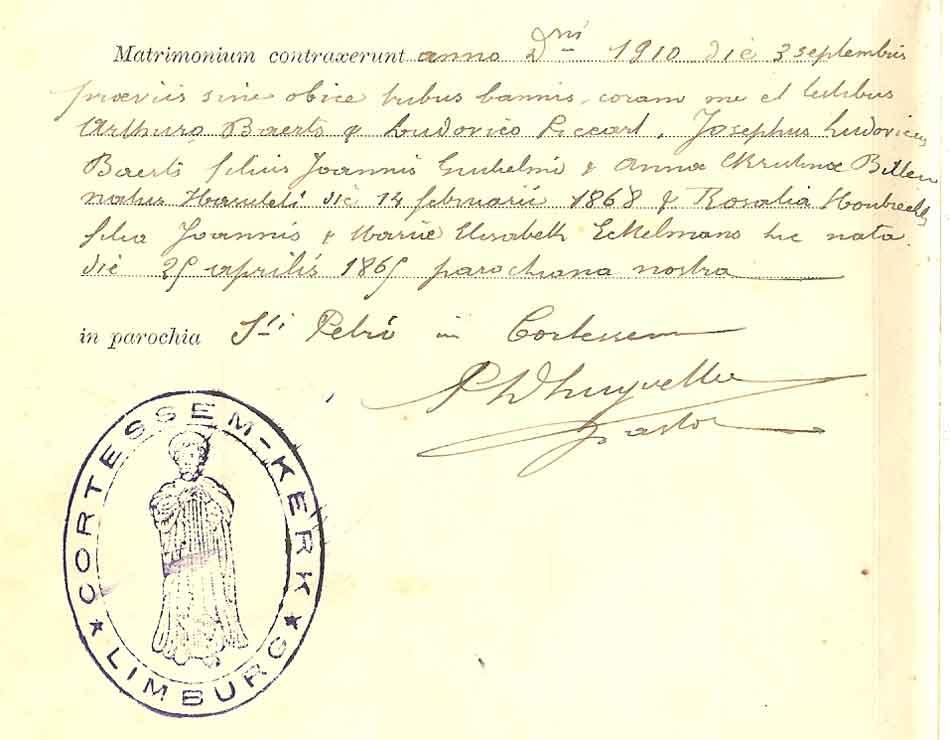 Matrimonium contraxerunt anno Dni 1910 die 3 septembris
præviis sine obice tribus bannis, coram me et testibus
Arthuro Baerts & Ludovico Piccart, Josephus Ludovicus
Baerts filius Joannis Guilielmi & Anna Christina Bitten
natus die 14 februarii 1868 & Rosalia Houbrechts
filia Joannis & Mariæ Elisabeth Eckelmans hic nata
die 25 aprilis 1865 parochiana nostra
in parochia Sti Petri in Cortessem
pastor
CORTESSEM-KERK
LIMBURG